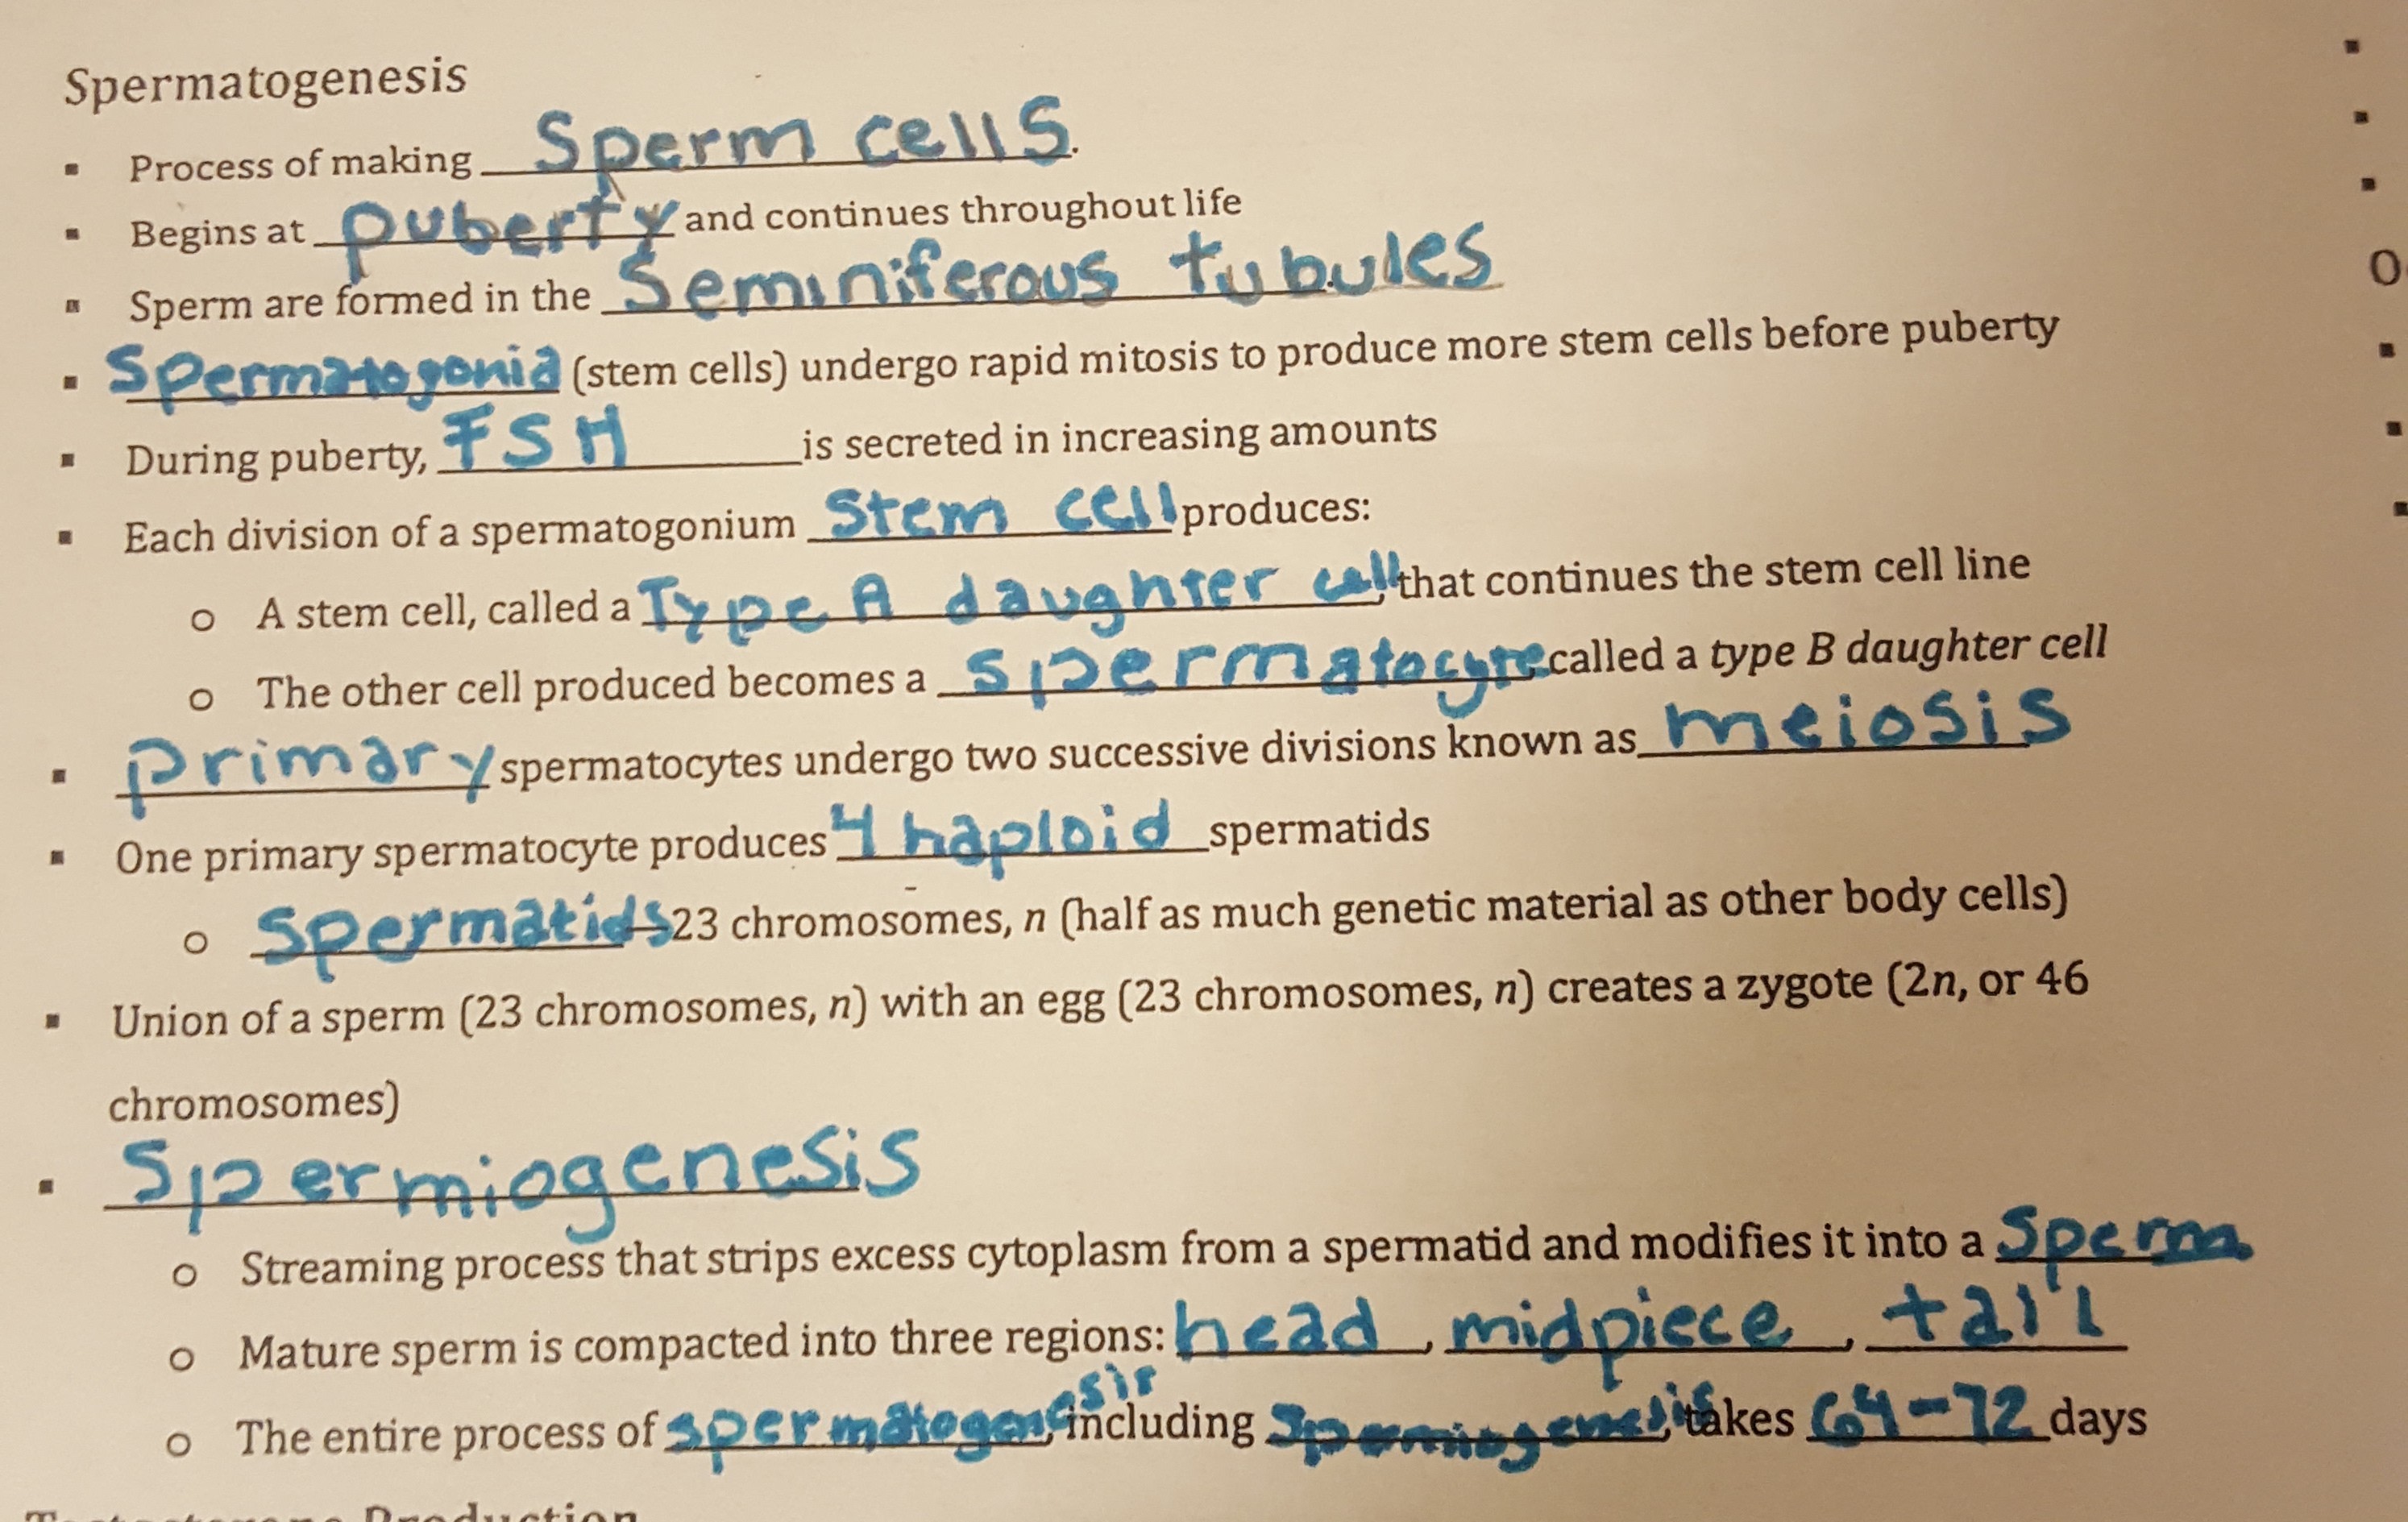 Spermatogenesis
▪ Process of making Sperm cells.
▪ Begins at puberty and continues throughout life
▪ Sperm are formed in the Seminiferous tubules
▪ Spermatogonia (stem cells) undergo rapid mitosis to produce more stem cells before puberty
▪ During puberty, FSH is secreted in increasing amounts
▪ Each division of a spermatogonium stem cell produces:
o A stem cell, called a Type A daughter cell, that continues the stem cell line
o The other cell produced becomes a spermatocyte, called a type B daughter cell
▪ primary spermatocytes undergo two successive divisions known as meiosis
▪ One primary spermatocyte produces 4 haploid spermatids
o spermatids—23 chromosomes, n (half as much genetic material as other body cells)
▪ Union of a sperm (23 chromosomes, n) with an egg (23 chromosomes, n) creates a zygote (2n, or 46
chromosomes)
▪ Spermiogenesis
o Streaming process that strips excess cytoplasm from a spermatid and modifies it into a sperm
o Mature sperm is compacted into three regions: head, midpiece, tail
o The entire process of spermatogenesis, including Spermiogenesis, takes 64-72 days
Production